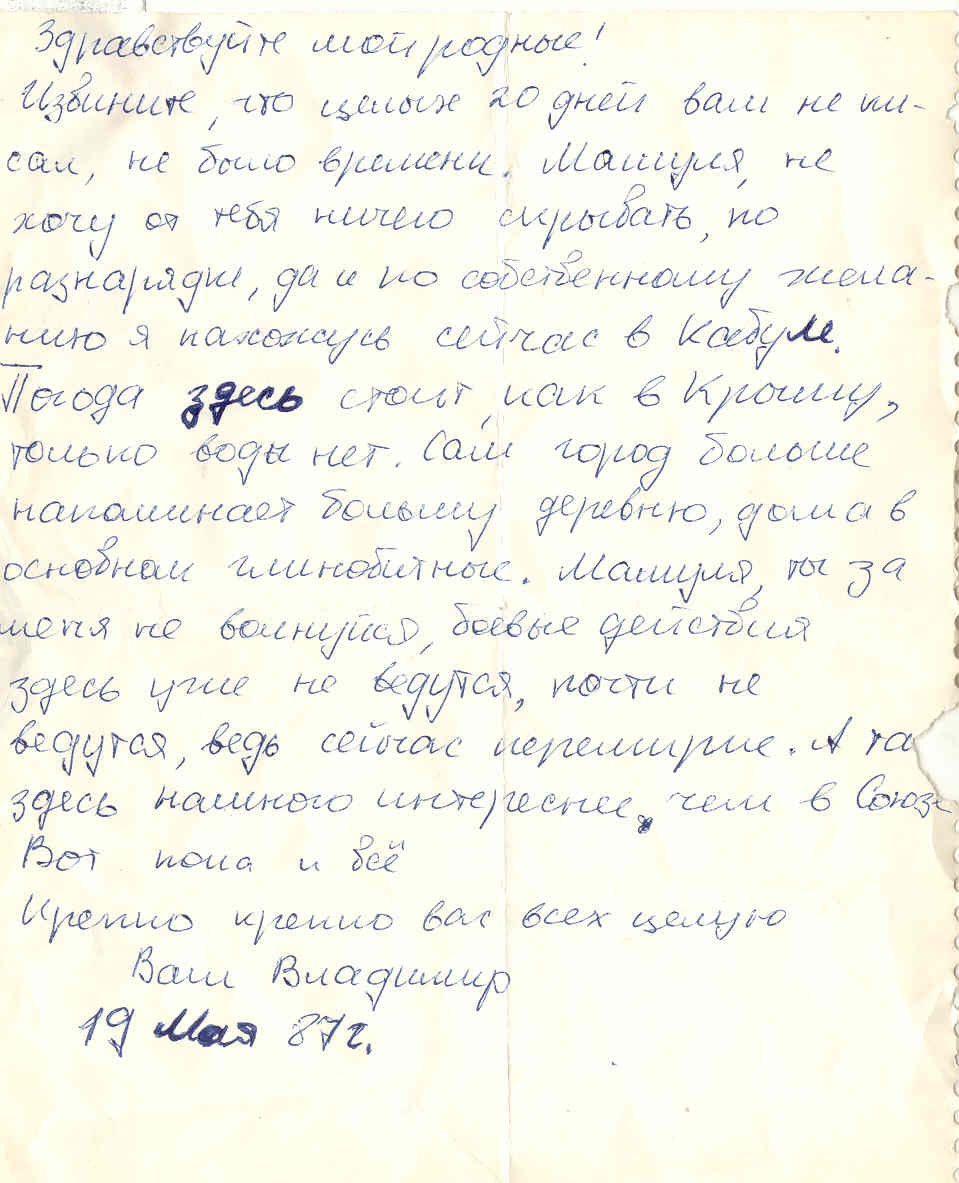 Здравствуйте мои родные!
Извините, что целых 20 дней вам не пи-
сал, не было времени. Мамуля, не
хочу от тебя ничего скрывать, по
разнарядке, да и по собственному жела-
нию я нахожусь сейчас в Кабуле.
Погода здесь стоит, как в Крыму,
только воды нет. Сам город больше
напоминает большу деревню, дома в
основном глинобитные. Мамуля, ты за
меня не волнуйся, боевые действия
здесь уже не ведутся, почти не
ведутся, ведь сейчас перемирие. А та
здесь намного интереснее, чем в Союзе
Вот пока и всё
Крепко крепко вас всех целую
Ваш Владимир
19 Мая 87г.